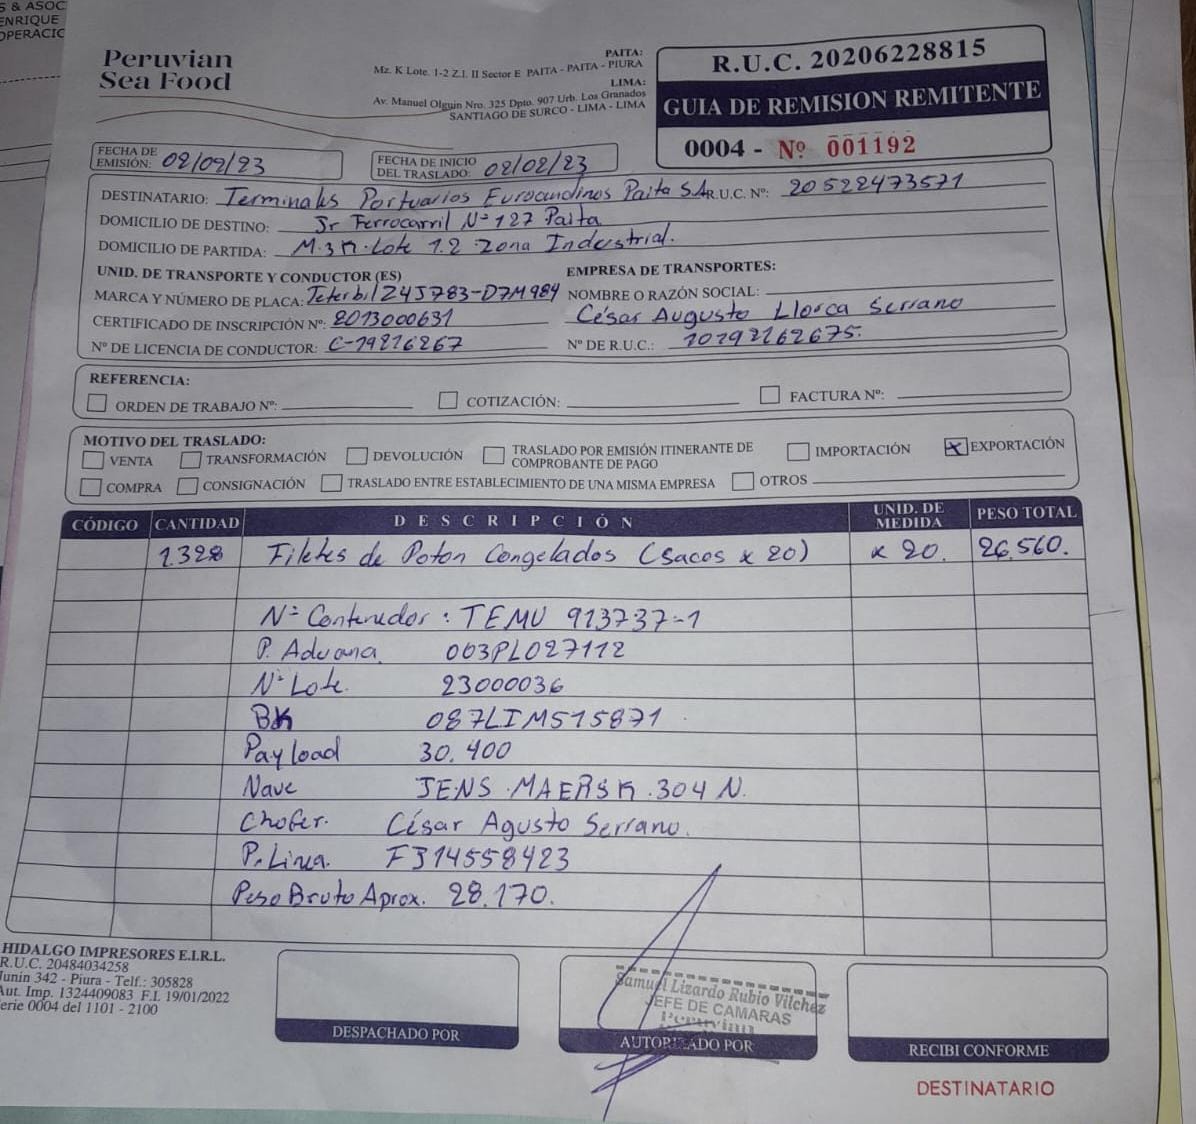 S & ASOC
ENRIQUE
OPERACIO
Peruvian
Sea Food
PAITA:
Mz. K Lote. 1-2 Z.I. II Sector E PAITA - PAITA - PIURA
LIMA:
Av. Manuel Olguin Nro. 325 Dpto. 907 Urb. Los Granados
SANTIAGO DE SURCO - LIMA - LIMA
R.U.C. 20206228815
GUIA DE REMISION REMITENTE
0004 - Nº 001192
FECHA DE EMISIÓN: 02/02/23
FECHA DE INICIO DEL TRASLADO: 02/02/23
DESTINATARIO: Terminales Portuarios Euroandinos Paita S.A R.U.C. Nº: 20522473571
DOMICILIO DE DESTINO: Jr Ferrocarril Nº 127 Paita
DOMICILIO DE PARTIDA: M.3 K. Lote 1.2 Zona Industrial.
UNID. DE TRANSPORTE Y CONDUCTOR (ES)
EMPRESA DE TRANSPORTES:
MARCA Y NÚMERO DE PLACA: Z4J783-D7M984
NOMBRE O RAZÓN SOCIAL:
CERTIFICADO DE INSCRIPCIÓN Nº: 2013000631
César Augusto Llorca Serrano
Nº DE LICENCIA DE CONDUCTOR: C-19216267
Nº DE R.U.C.: 10192162675.
REFERENCIA:
ORDEN DE TRABAJO Nº: COTIZACIÓN: FACTURA Nº:
MOTIVO DEL TRASLADO:
VENTA TRANSFORMACIÓN DEVOLUCIÓN TRASLADO POR EMISIÓN ITINERANTE DE COMPROBANTE DE PAGO IMPORTACIÓN X EXPORTACIÓN
COMPRA CONSIGNACIÓN TRASLADO ENTRE ESTABLECIMIENTO DE UNA MISMA EMPRESA OTROS
CÓDIGO CANTIDAD DESCRIPCIÓN UNID. DE MEDIDA PESO TOTAL
1.328 Filetes de Poton Congelados (Sacos x 20) x 20. 26,560.
Nº Contenedor : TEMU 913737-1
P. Aduana. 003PL027112
Nº Lote. 23000036
BK 087LIM515871
Payload 30.400
Nave JENS MAERSK 304 N.
Chofer. César Agusto Serrano.
P. Linea. FJ14558423
Peso Bruto Aprox. 28.170.
HIDALGO IMPRESORES E.I.R.L.
R.U.C. 20484034258
Junin 342 - Piura - Telf.: 305828
Aut. Imp. 1324409083 F.I. 19/01/2022
Serie 0004 del 1101 - 2100
Samuel Lizardo Rubio Vilchez
JEFE DE CAMARAS
Peruvian
DESPACHADO POR
AUTORIZADO POR
RECIBI CONFORME
DESTINATARIO